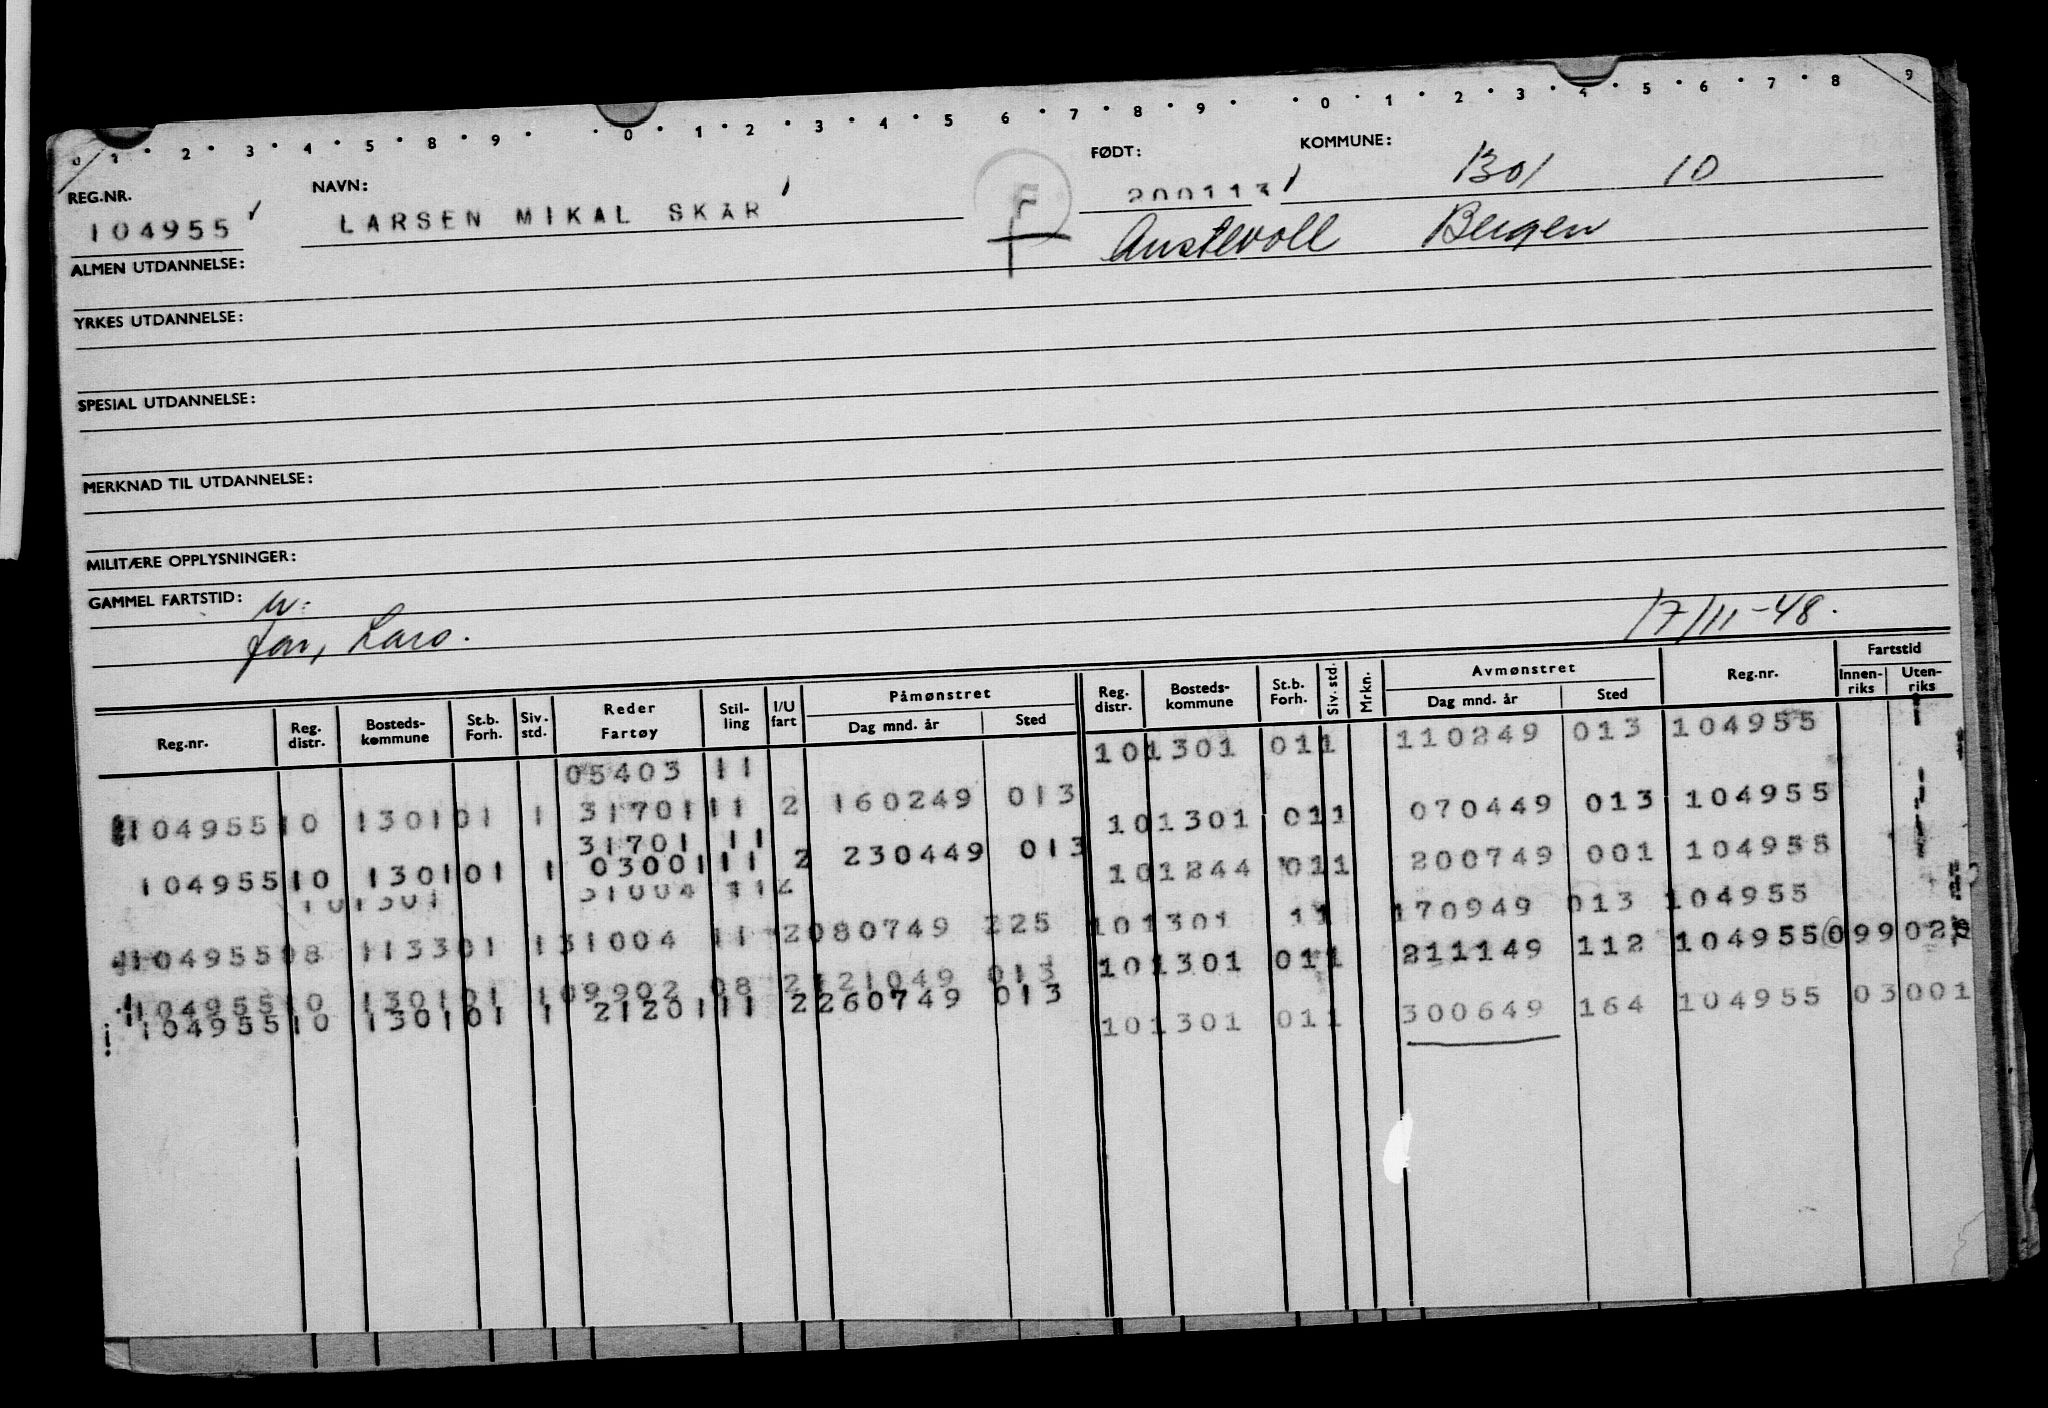 0 1 2 3 4 5 8 9 0 1 2 3 4 5 6 7 8 9 0 1 2 3 4 5 6 7 8 9
REG.NR. NAVN: FØDT: KOMMUNE:
104955 LARSEN MIKAL SKAR F 200113 1301 10
Austevoll Bergen
ALMEN UTDANNELSE:
YRKES UTDANNELSE:
SPESIAL UTDANNELSE:
MERKNAD TIL UTDANNELSE:
MILITÆRE OPPLYSNINGER:
GAMMEL FARTSTID:
far, Lars. 17/11-48.
Reg.nr. Reg. distr. Bosteds-kommune St.b. Forh. Siv. std. Reder Fartøy Stil-ling I/U fart Påmønstret Dag mnd. år Sted Reg. distr. Bosteds-kommune St.b. Forh. Siv. std. Mrkn. Avmønstret Dag mnd. år Sted Reg.nr. Fartstid Innen-riks Uten-riks
05403 11 101301 011 110249 013 104955
104955 10 1301 01 1 31701 11 2 160249 013 101301 011 070449 013 104955
31701 11
104955 10 1301 01 1 03001 11 2 230449 013 101244 011 200749 001 104955
101301 31004 112
104955 08 1133 01 1 31004 11 2 080749 225 101301 11 170949 013 104955
104955 10 1301 01 1 09902 08 2 121049 013 101301 011 211149 112 104955 099 02
104955 10 1301 01 1 21201 11 2 260749 013 101301 011 300649 164 104955 03001